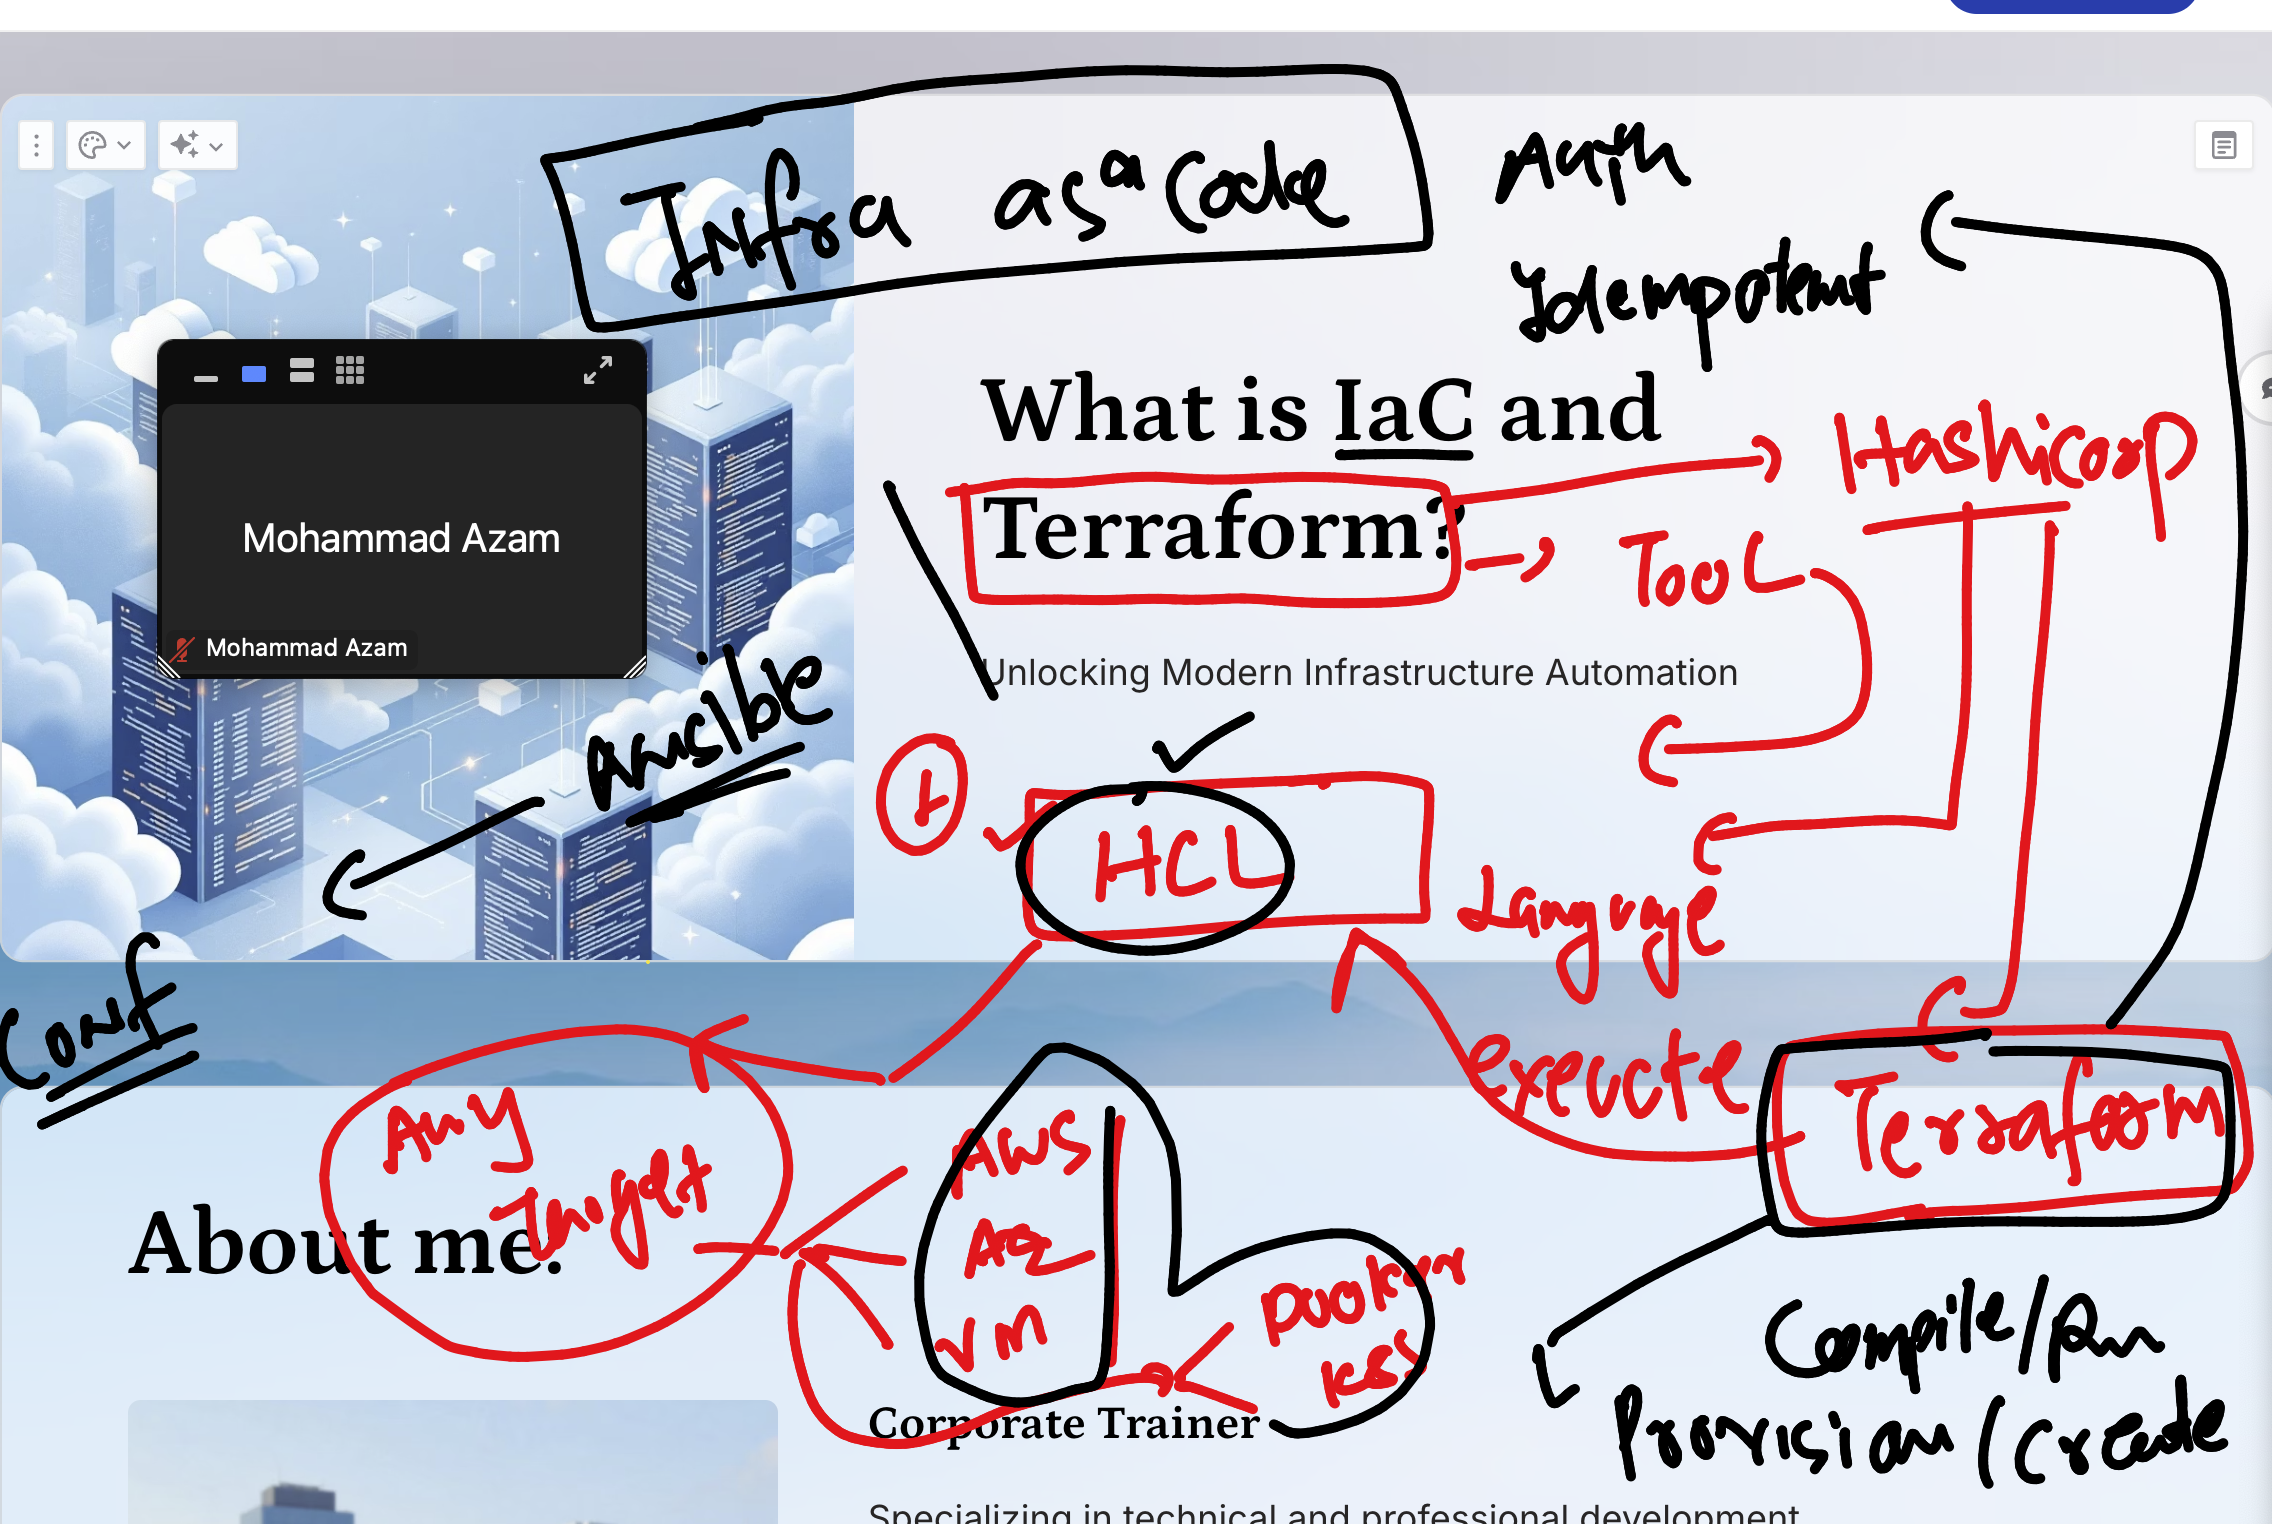 Infra as a Code
Auth
Idempotent
What is IaC and
Terraform?
Hashicorp
TOOL
Mohammad Azam
Mohammad Azam
Unlocking Modern Infrastructure Automation
Ansible
1
HCL
Language
Conf
execute
Terraform
Any
Target
AWS
Az
VM
About me:
Docker
K8s
Compile/Run
Provision/Create
Corporate Trainer
Specializing in technical and professional development